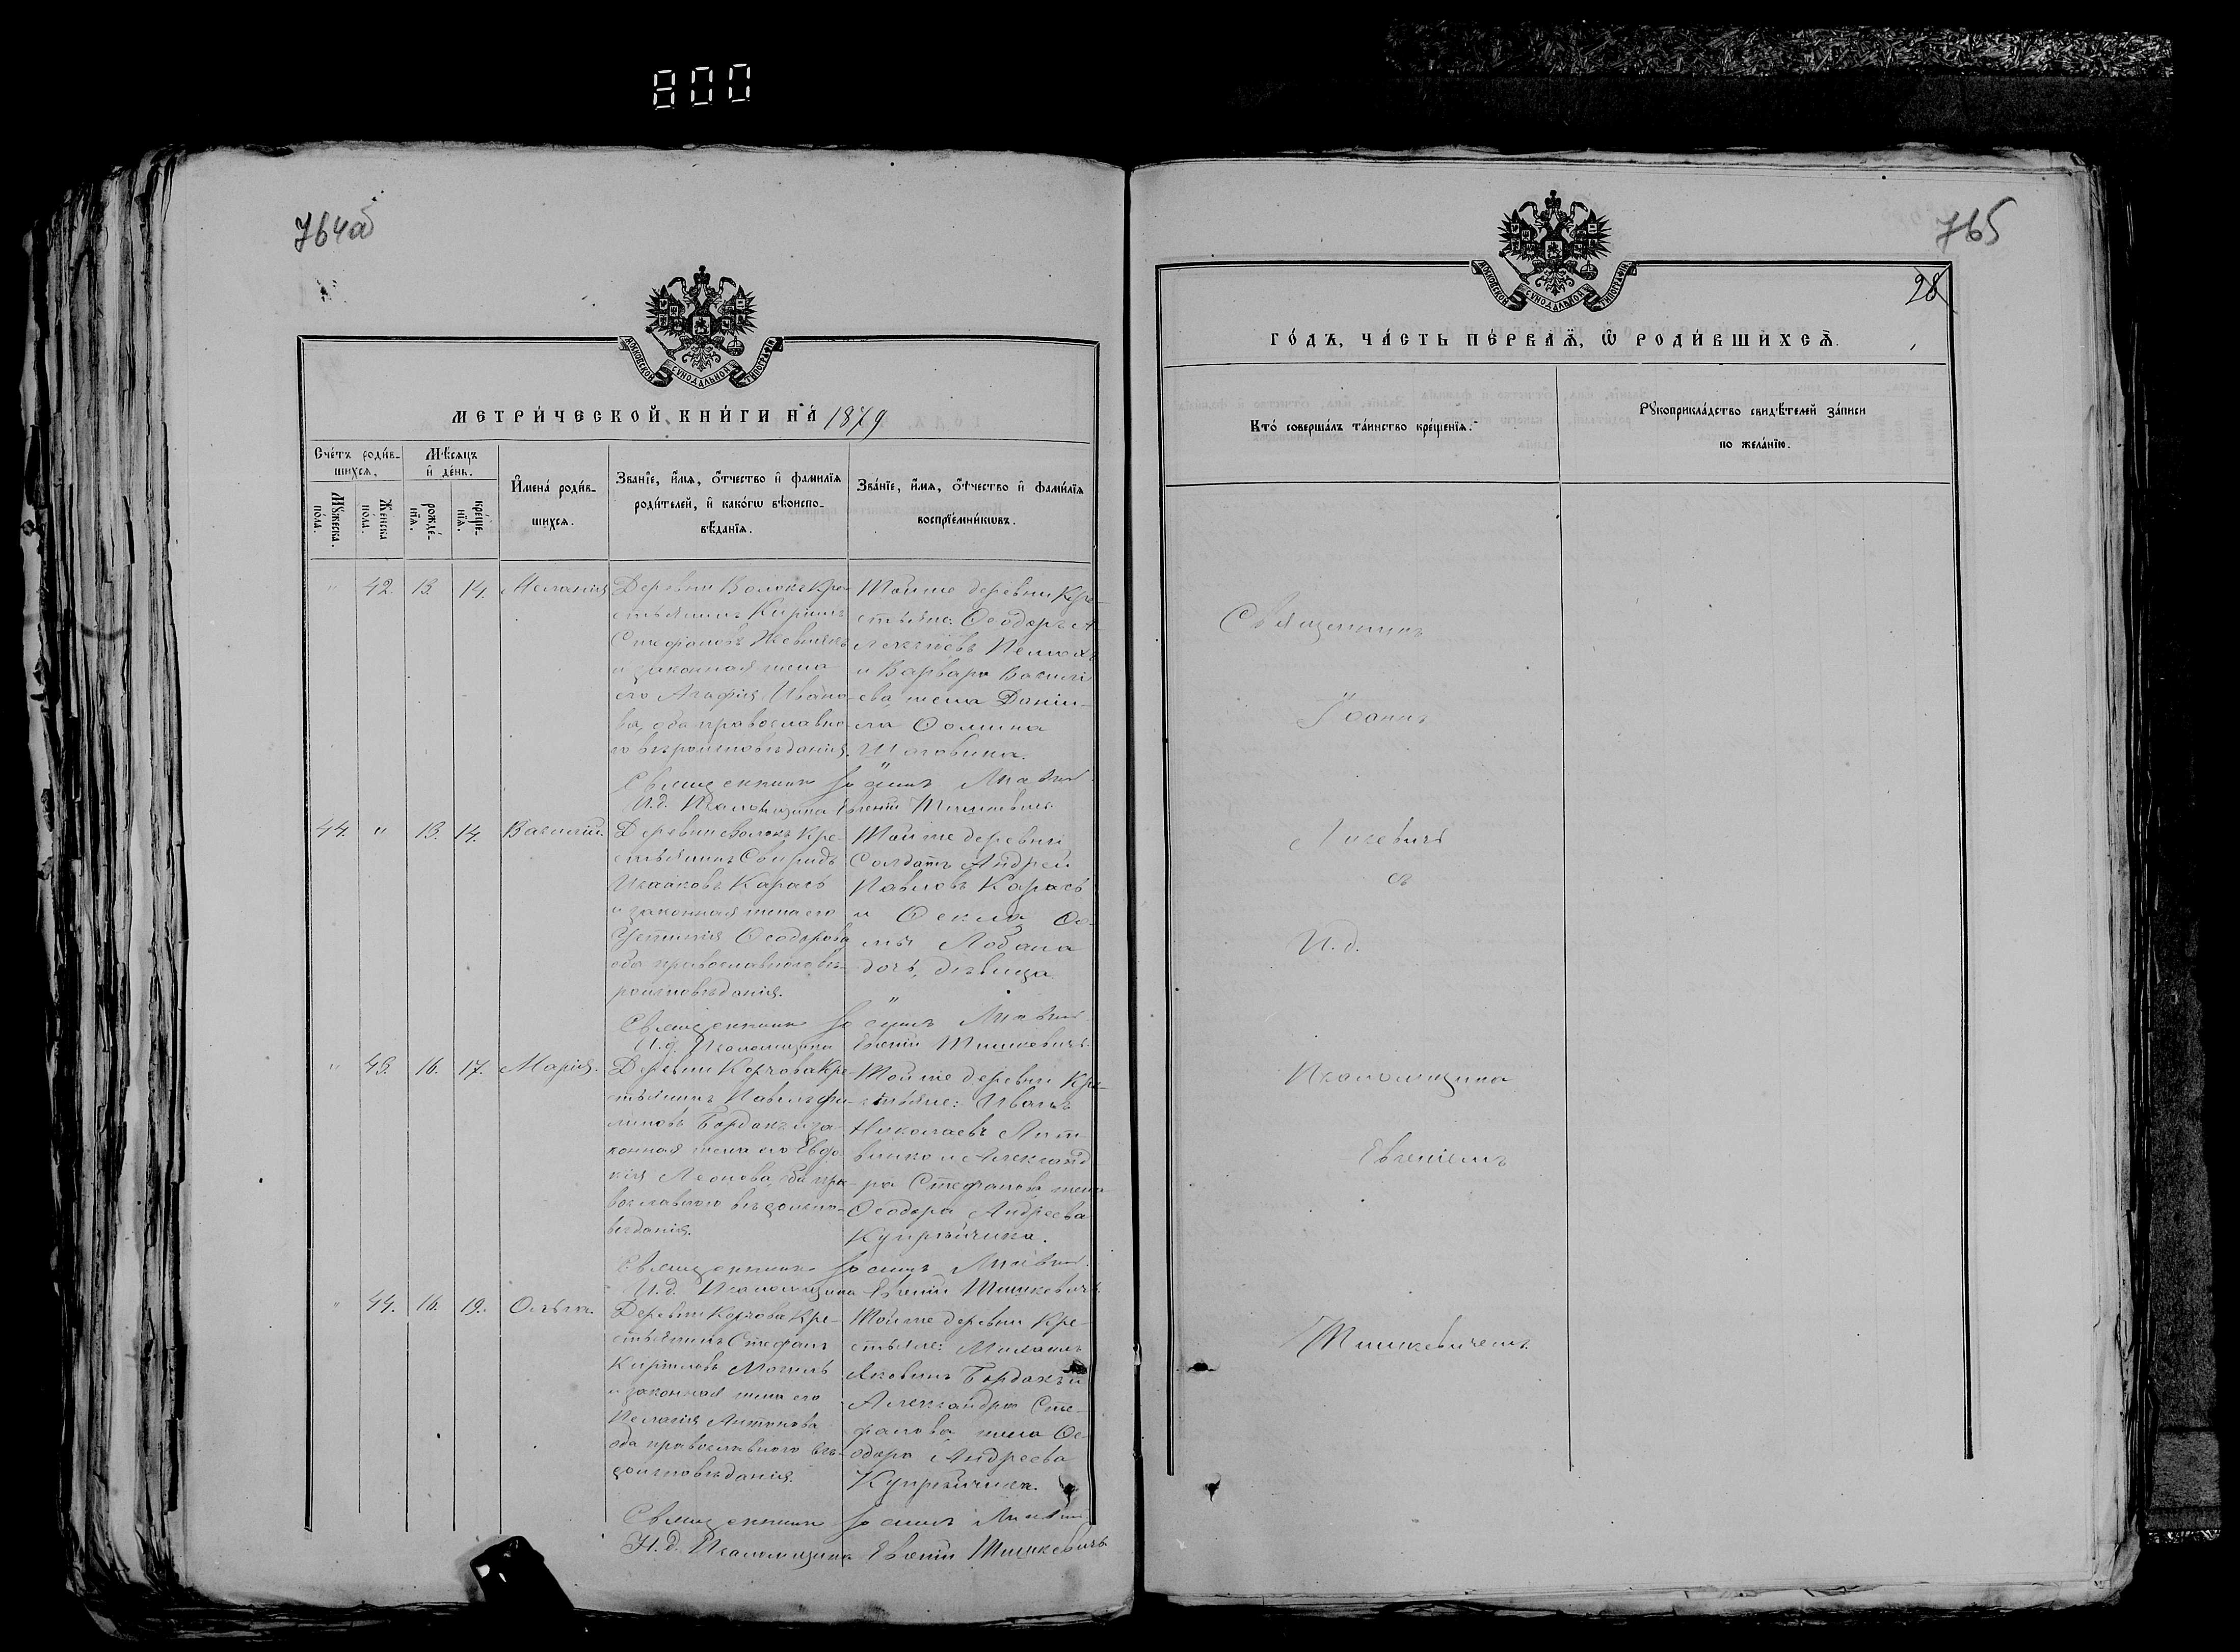 800
764об
765
28
МОСКОВСКОЙ СѴНОДАЛЬНОЙ ТИПОГРАФІИ
МОСКОВСКОЙ СѴНОДАЛЬНОЙ ТИПОГРАФІИ
МЕТРИ́ЧЕСКОЙ КНИ́ГИ НА̀ 1879
Сче́тъ роди́в-
шихсѧ.
Мѣ́сѧцъ
и҆ де́нь.
Мꙋ́жеска по́ла.
Же́нска по́ла.
рожде́-
нїѧ.
креще́-
нїѧ.
И҆мена̀ роди́в-
шихсѧ.
Зва́нїе, и҆́мѧ, ѻ҆́тчество и҆ фами́лїѧ
роди́телей, и҆ како́гѡ вѣроиспо-
вѣ́данїѧ.
Зва́нїе, и҆́мѧ, ѻ҆́тчество и҆ фами́лїѧ
воспрїе́мникѡвъ.
" 42. 13. 14. Меланія
Деревни Волокъ Кре-
стьянинъ Кирилъ
Стефановъ
и законная жена
его Агафія Ивано-
ва, оба православна-
го вѣроисповѣданія.
Тойже деревни Кре-
стьяне: Ѳеодоръ А-
лексѣевъ
и Варвара Васильі-
ева жена Даніи-
ла Ѳомина
Священникъ Іоаннъ
И.д. Псаломщика Евгеній Тишкевичъ
44. " 13. 14. Василій.
Деревни Волокъ Кре-
стьянинъ Свиридъ
Исааковъ Карась
и законная жена его
Устинія Ѳеодорова
оба православнаго вѣ-
роисповѣданія.
Тойже деревни
Солдатъ Андрей
Павловъ Карась
и Ѳекла Ѳо-
мы Лобана
дочь, дѣвица.
Священникъ Іоаннъ
И.д. Псаломщика Евгеній Тишкевичъ
" 43. 16. 17. Марія.
Деревни Корчова Кре-
стьянинъ Павелъ Фи-
липовъ Бордакъ и за-
конная жена его Евдо-
кія Леонова, оба пра-
вославнаго вѣроиспо-
вѣданія.
Тойже деревни Кре-
стьяне: Иванъ
Николаевъ Лит-
винко и Александ-
ра Стефанова жена
Ѳеодора Андреева
Купрѣйчика.
Священникъ Іоаннъ
И.д. Псаломщика Евгеній Тишкевичъ
" 44. 16. 19. Ольга.
Деревни Корчова Кре-
стьянинъ Стефанъ
Кириловъ
и законная жена его
Пелагія Антонова
оба православнаго вѣ-
роисповѣданія.
Тойже деревни Кре-
стьяне:
Яковинъ Бордакъ и
Александра Сте-
фанова жена Ѳе-
одора Андреева
Купрѣйчика.
Священникъ Іоаннъ
И.д. Псаломщика Евгеній Тишкевичъ
ГО́ДЪ, ЧА́СТЬ ПЕ́РВАѦ, Ѽ РОДИ́ВШИХСѦ.
Кто̀ соверша́лъ та́инство креще́нїѧ.
Рꙋкоприкла́дство свидѣ́телей за́писи
по жела́нїю.
Священникъ
Іоаннъ
съ
И.д.
Псаломщика
Евгеніемъ
Тишкевичемъ